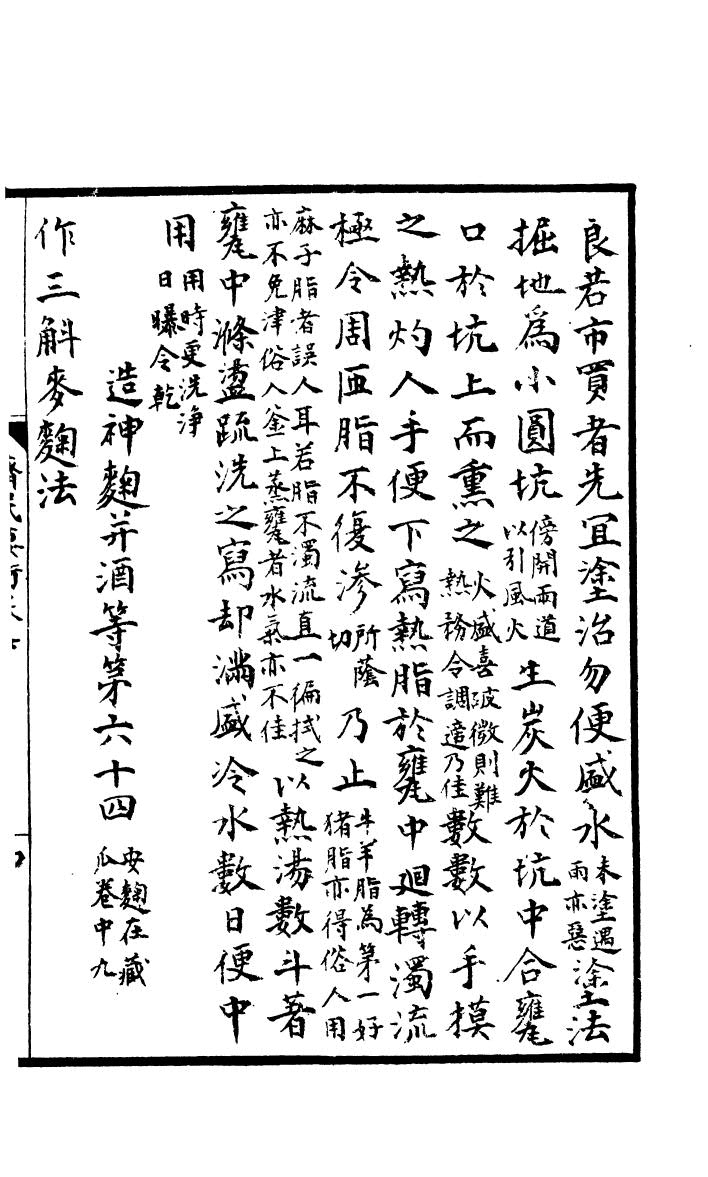 良若市買者先冝塗治勿便盛水未塗遇雨亦惡塗法
掘地爲小圓坑傍開兩道以引風火生炭火於坑中合甕
口於坑上而熏之火盛喜破微則難熱務令調適乃佳數數以手摸
之熱灼人手便下寫熱脂於甕中廻轉濁流
極令周匝脂不復滲所蔭切乃止牛羊脂為第一好猪脂亦得俗人用
麻子脂者誤人耳若脂不濁流直一徧拭之亦不免津俗人釜上蒸甕者水氣亦不佳以熱湯數斗著
甕中滌盪疏洗之寫却滿盛冷水數日便中
用用時更洗浄日曝令乾
造神麴并酒等第六十四安麴在藏瓜卷中九
作三斛麥麴法